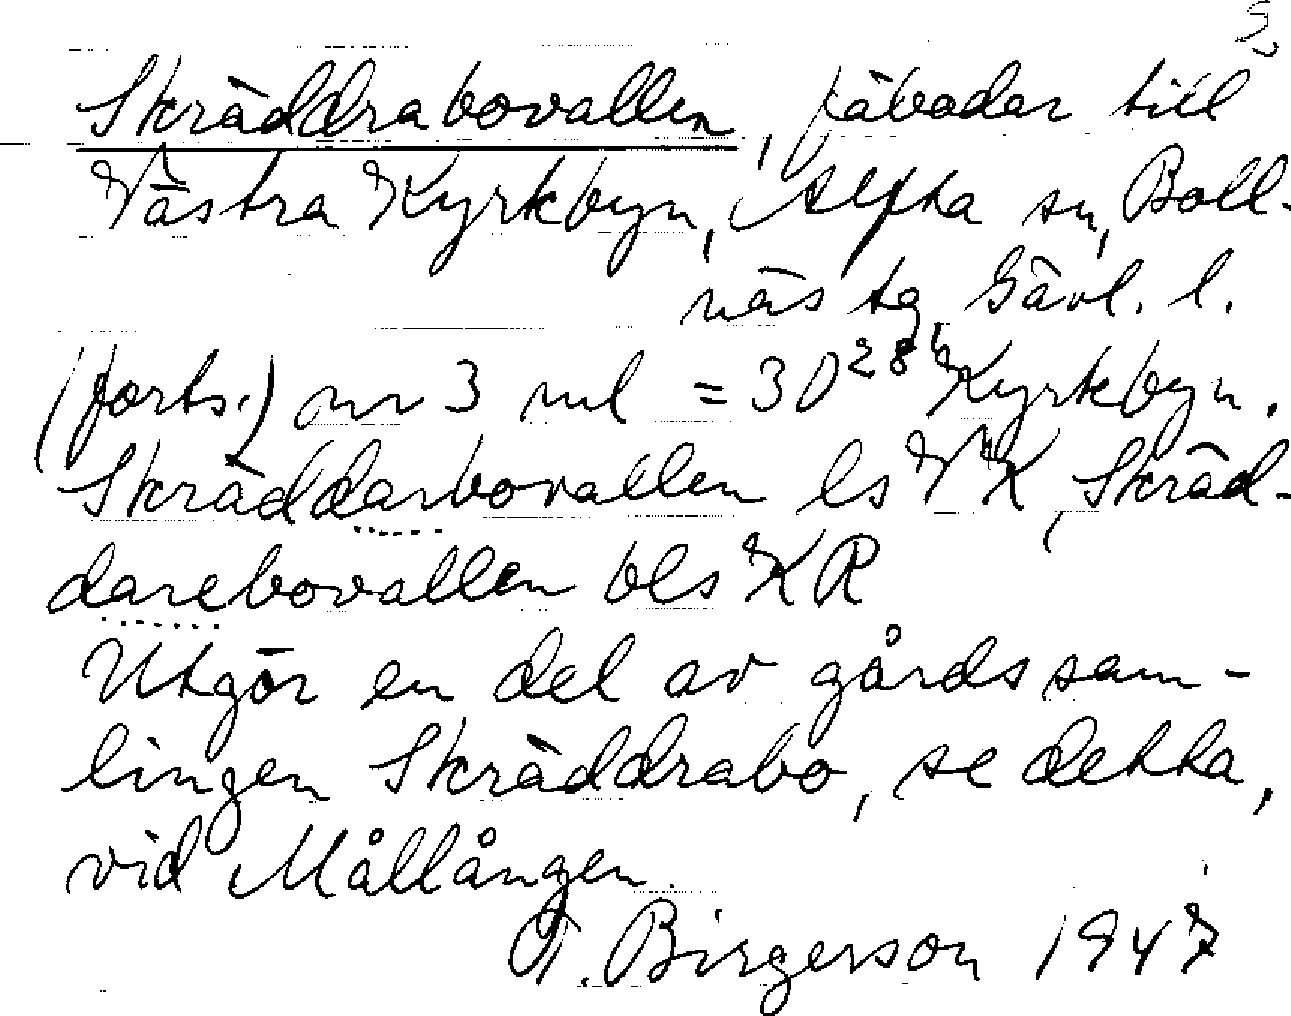 S
Skräddrabovallen, fäbodar till
Västra Kyrkbyn, Alfta sn, Boll-
näs tg, Gävl. l.
(forts.) nv 3 mil = 30²⁸ Kyrkbyn.
Skräddarbovallen ls VK, Skräd-
darebovallen bls KR
Utgör en del av gårdssam-
lingen Skräddrabo, se detta,
vid Mållången.
T. Birgerson 1947